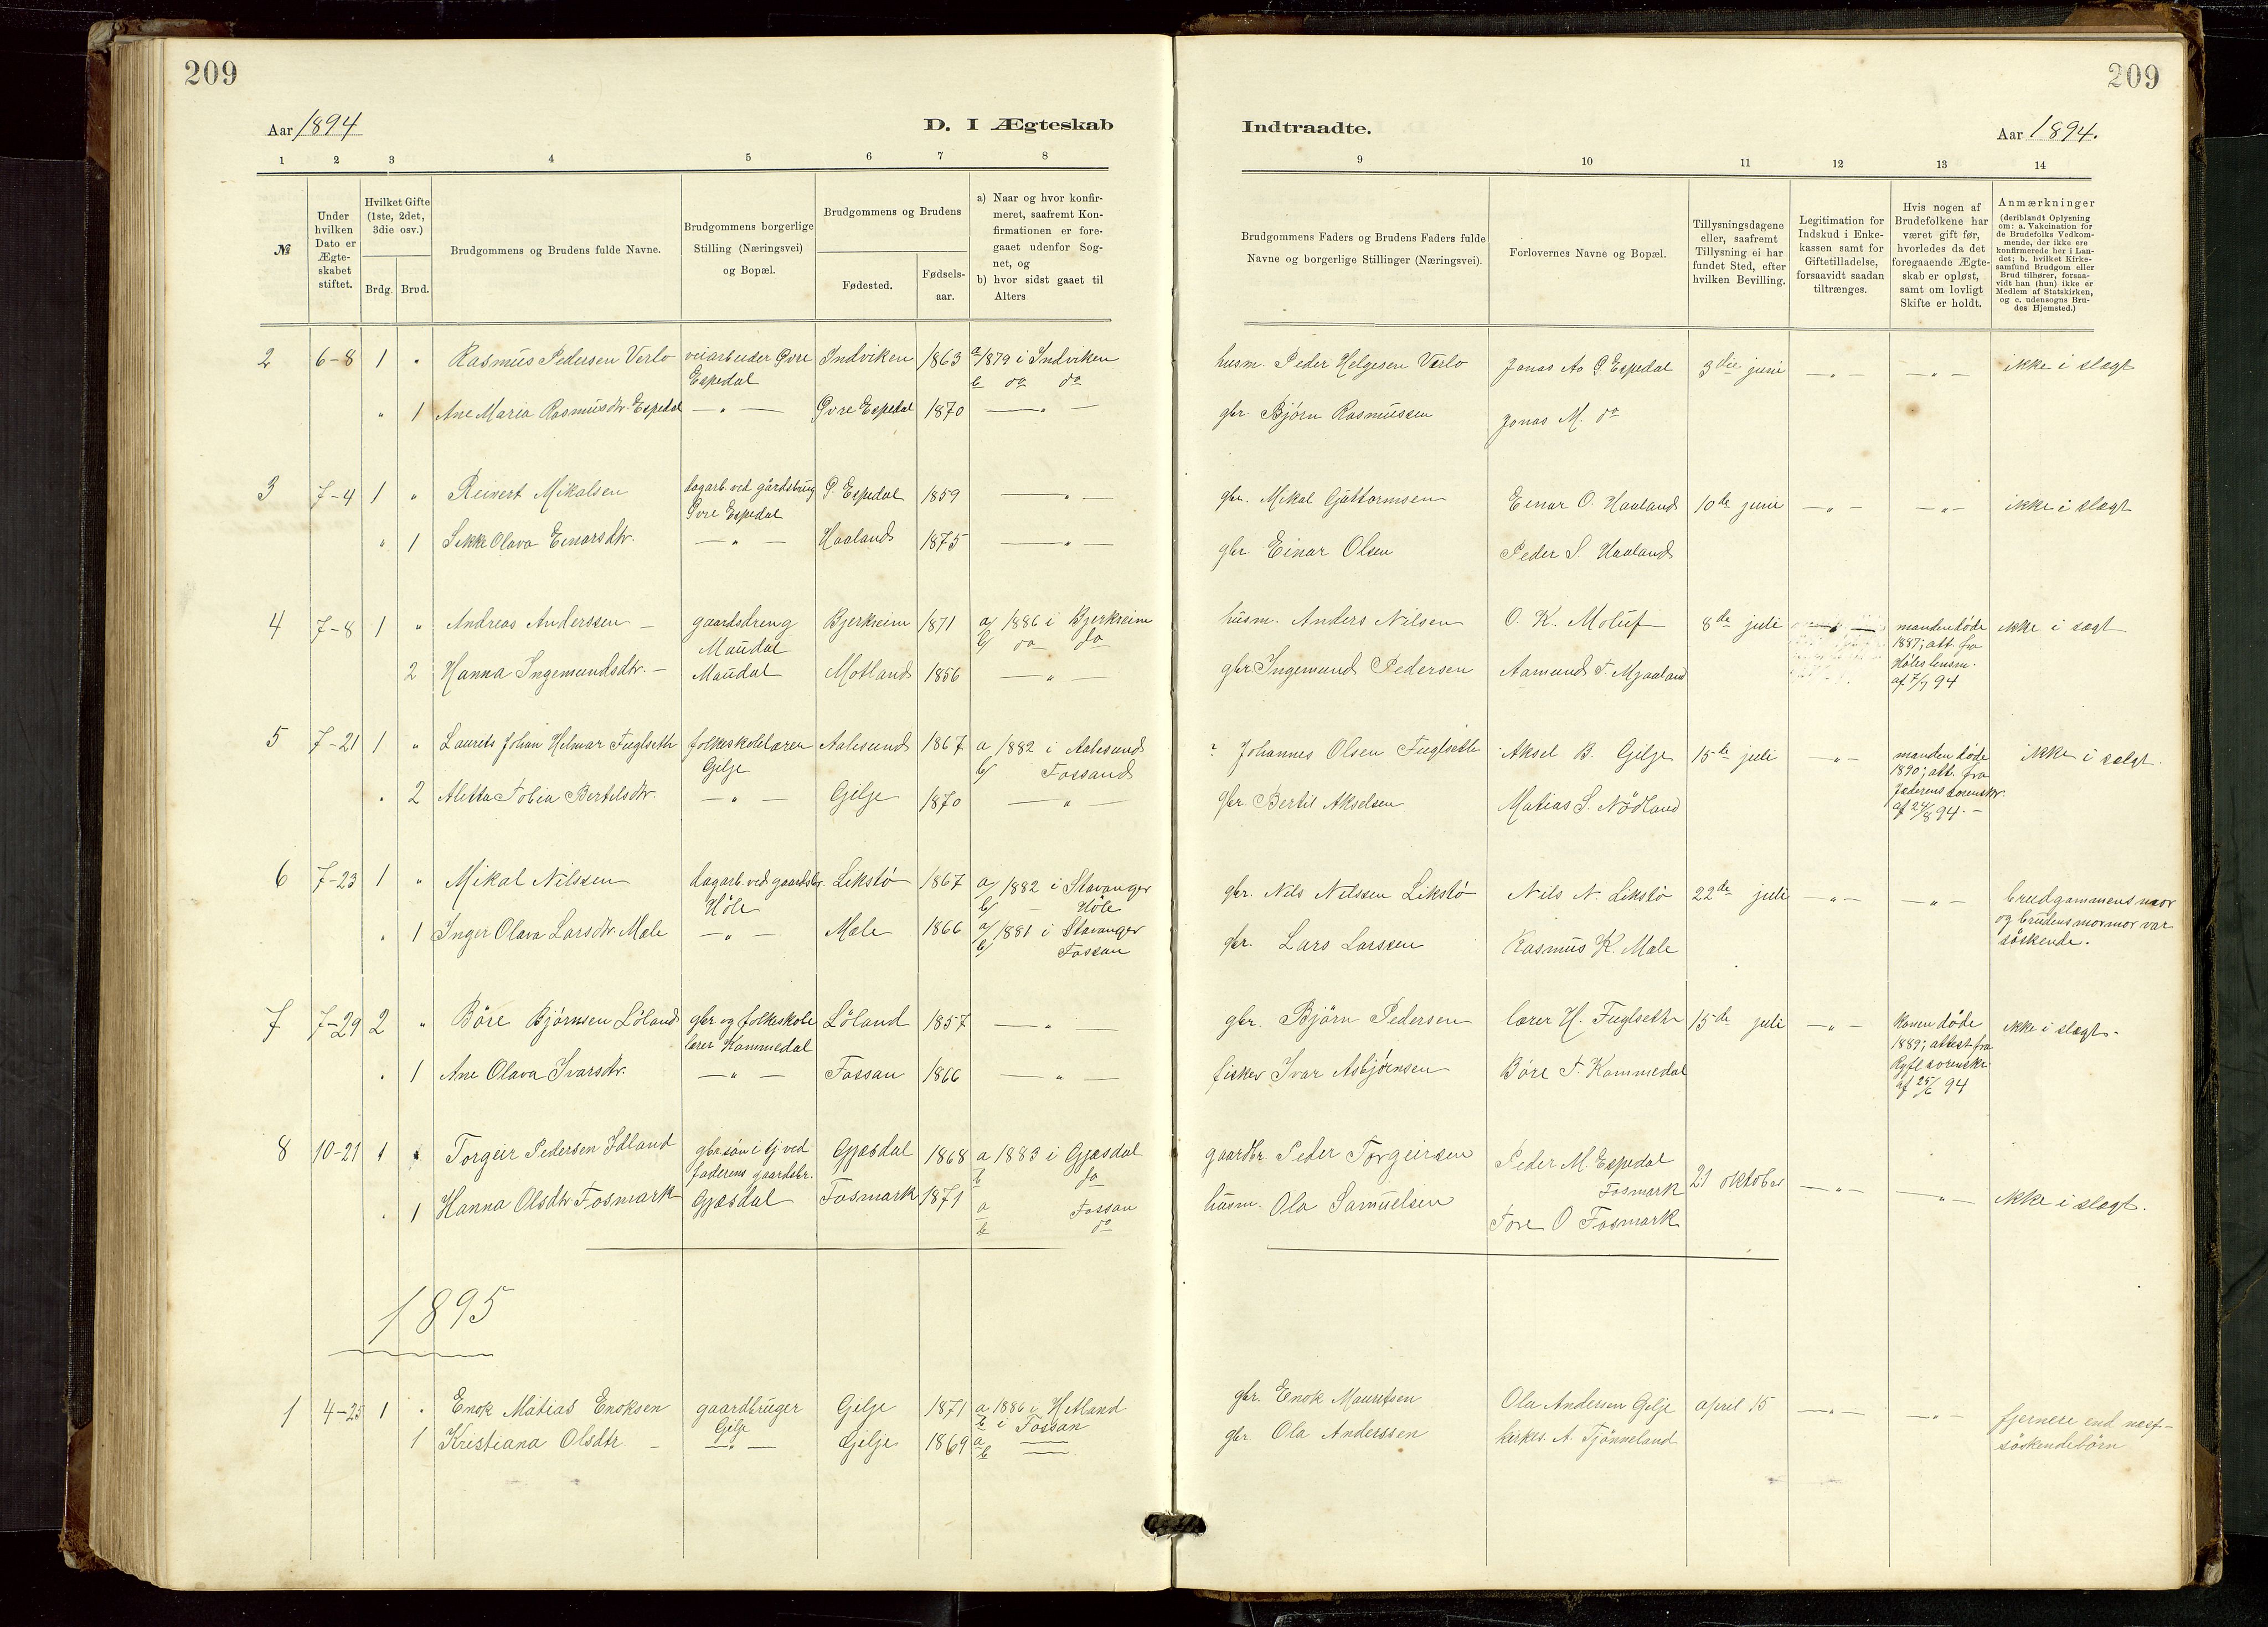 209
209
Aar 1894
D. I Ægteskab
Indtraadte.
Aar 1894.
1 2 3 4 5 6 7 8 9 10 11 12 13 14
№
Under hvilken Dato er Ægteskabet stiftet.
Hvilket Gifte (1ste, 2det, 3die osv.)
Brdg. Brud.
Brudgommens og Brudens fulde Navne.
Brudgommens borgerlige Stilling (Næringsvei) og Bopæl.
Brudgommens og Brudens
Fødested. Fødselsaar.
a) Naar og hvor konfirmeret, saafremt Konfirmationen er foregaaet udenfor Sognet, og
b) hvor sidst gaaet til Alters
Brudgommens Faders og Brudens Faders fulde Navne og borgerlige Stillinger (Næringsvei).
Forlovernes Navne og Bopæl.
Tillysningsdagene eller, saafremt Tillysning ei har fundet Sted, efter hvilken Bevilling.
Legitimation for Indskud i Enkekassen samt for Giftetilladelse, forsaavidt saadan tiltrænges.
Hvis nogen af Brudefolkene har været gift før, hvorledes da det foregaaende Ægteskab er opløst, samt om lovligt Skifte er holdt.
Anmærkninger (deriblandt Oplysning om: a. Vakcination for de Brudefolks Vedkommende, der ikke ere konfirmerede her i Landet; b. hvilket Kirkesamfund Brudgom eller Brud tilhører, forsaavidt han (hun) ikke er Medlem af Statskirken, og c. udensogns Brudes Hjemsted.)
2 6-8 1 " Rasmus Pedersen Verlo veiarbeider Øvre Espedal Indviken 1863 a/1879 i Indviken b do do husm. Peder Helgesen Verlo Jonas As G Espedal 3die juni —"— —"— ikke i slægt
" 1 Ane Maria Rasmusdtr. Espedal —"— Øvre Espedal 1870 —"— gbr. Bjørn Rasmussen Jonas M. do
3 7-4 1 " Reinert Mikalsen dagarb. ved gårdsbrug Øvre Espedal Ø. Espedal 1859 —"— gbr. Mikal Guttormsen Einar O. Haaland 10de juni —"— —"— ikke i slægt
" 1 Sikke Olava Einarsdtr. —"— Haaland 1875 —"— gbr. Einar Olsen Peder S. Haaland
4 7-8 1 " Andreas Anderssen gaardsdreng Maudal Bjerkreim 1871 a/ 1886 i Bjerkreim b/ do do husm. Anders Nilsen O. K. Moluf 8de juli —"— manden døde 1887; att. fra Høles lensm. af 7/7 94 ikke i sægt
2 Hanna Ingemundsdtr. Maudal Motland 1856 —"— gbr. Ingemund Pedersen Aamund T. Mjaaland
5 7-21 1 " Laurits Johan Helmar Fuglseth folkeskolelærer Gilje Aalesund 1867 a 1882 i Aalesund b/ Fossand ? Johannes Olsen Fuglseth Aksel B. Gilje 15de juli —"— manden døde 1890; att. fra Jæderens sorenskr. af 24/8 94. ikke i sælgt.
" 2 Aletta Tobia Bertilsdtr. —"— Gilje 1870 —"— gbr. Bertil Akselsen Matias S. Nödland
6 7-23 1 " Mikal Nilssen dagarb. ved gaardsbr. Høle Likstø 1867 a/ 1882 i Stavanger b/ Høle gbr. Nils Nilssen Likstø Nils N. Likstø 22de juli —"— —"— brudgommens mor og brudens mormor var søskende.
" 1 Inger Olava Larsdtr. Mæle —"— Mæle 1866 a/ 1881 i Stavanger b/ Fossan gbr. Lars Larssen Rasmus K. Mæle
7 7-29 2 " Böre Bjørnsen Løland gbr og folkeskolelærer Kommedal Løland 1857 —"— gbr. Bjørn Pedersen lærer H. Fuglseth 15de juli —"— konen døde 1889; attest fra Ryfl sorenskr. af 25/6 94 ikke i slægt.
" 1 Ane Olava Ivarsdtr. —"— Fossan 1866 —"— fisker Ivar Asbjørnsen Børe T. Kommedal
8 10-21 1 " Torgeir Pedersen Idland gbr søn i tj ved faderens gaardsbr. Gjæsdal 1868 a 1883 i Gjæsdal b do gaardbr. Peder Torgeirsen Peder M. Espedal Fosmark 21 oktober —"— —"— ikke i slægt.
" 1 Hanna Olsdtr Fosmark Gjæsdal Fosmark 1871 a Fossan b do husm. Ola Samuelsen Tore O Fosmark
1895
1 4-25 1 " Enok Matias Enoksen gaardbruger Gilje Gilje 1871 a 1886 i Hetland b i Fossan gbr. Enok Mauritsen Ola Andersen Gilje april 15 —"— —"— fjernere end næst-søskendebörn
1 Kristiana Olsdtr. —"— Gilje 1869 a b gbr Ola Anderssen kirkes. A. Tjønneland